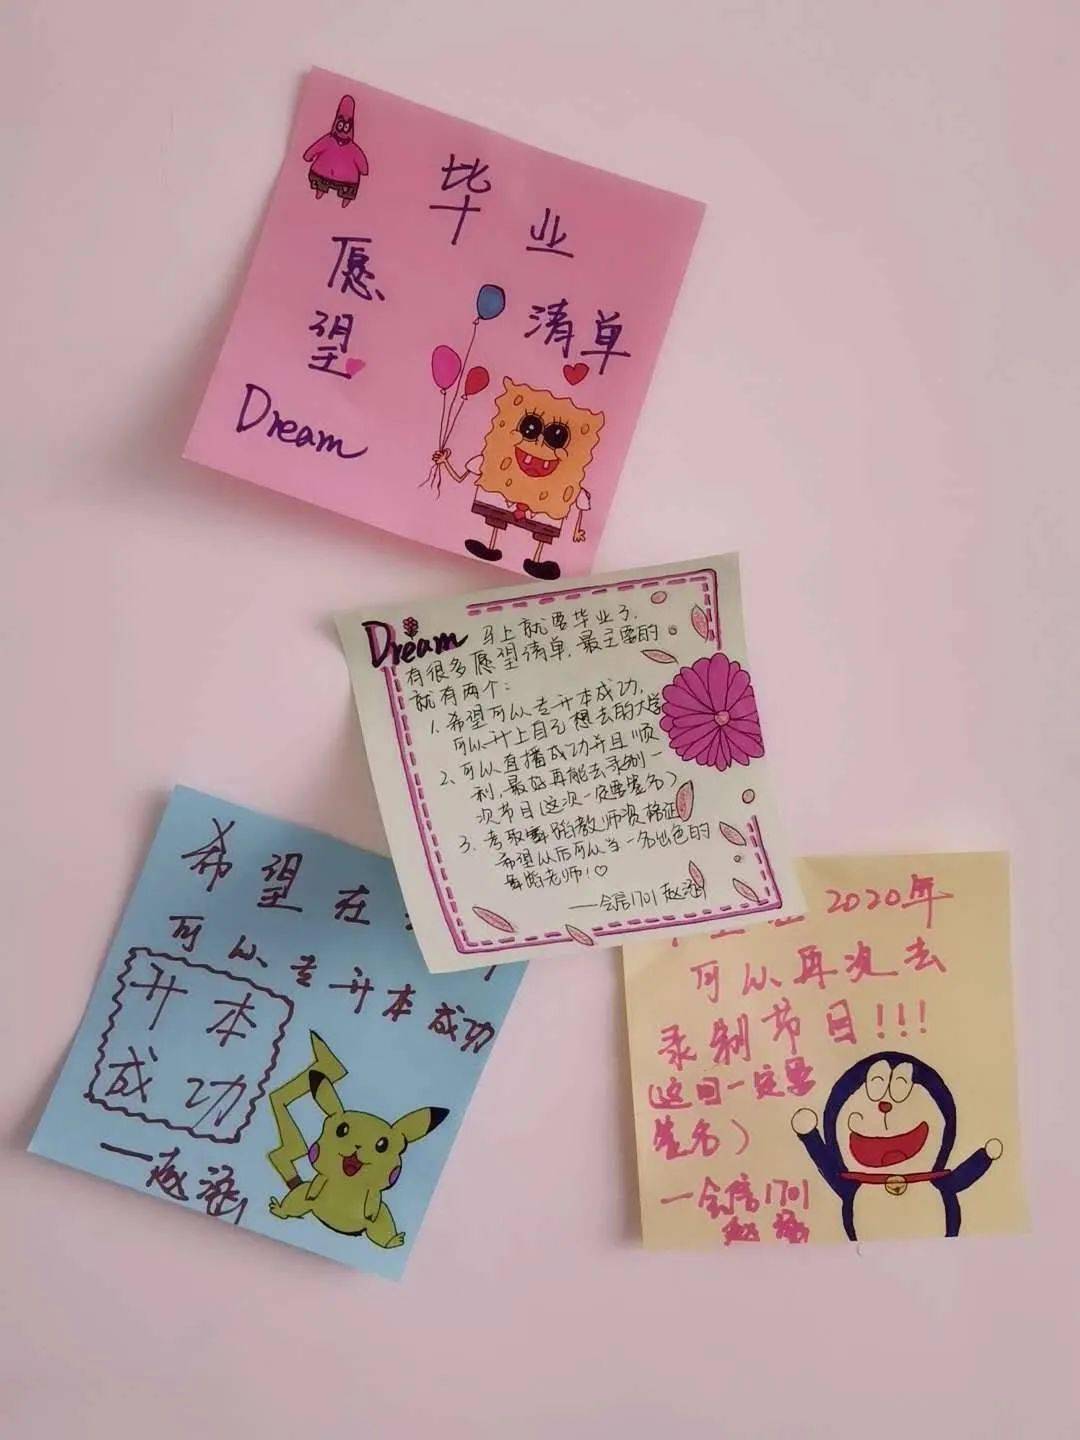 毕业
愿望
清单
Dream
Dream 马上就要毕业了,
有很多愿望清单,最主要的
就有两个:
1. 希望可以专升本成功,
可以升上自己想去的大学
2. 可以直播成功并且顺
利,最好再能去录制一
次节目(这次一定要签名)
3. 考取舞蹈教师资格证
希望以后可以当一名出色的
舞蹈老师!♡
——会信1701 赵涵
希望在
可以专升本成功
升本
成功
一赵涵
2020年
可以再次去
录制节目!!!
(这回一定要
签名)
一会信1701
赵涵